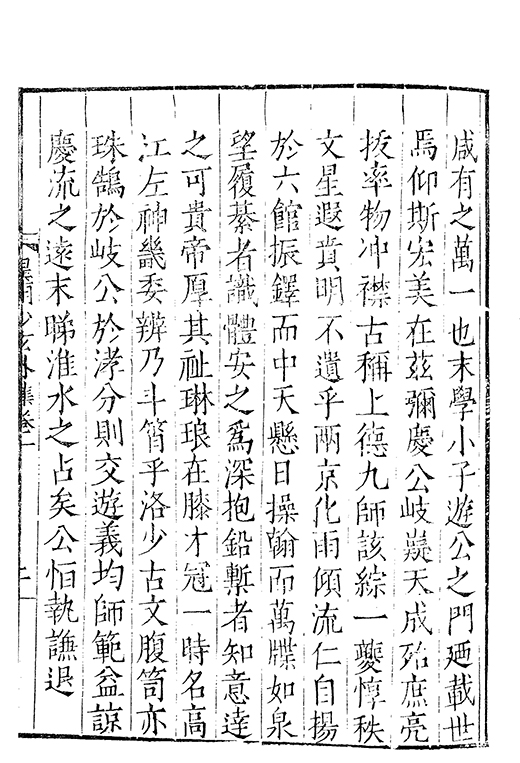 咸有之萬一也末學小子遊公之門廼載世
焉仰斯宏美在茲彌慶公岐嶷天成殆庶亮
拔率物冲襟古稱上德九師該綜一夔惇秩
文星遐賁明不遺乎兩京化雨傾流仁自揚
於六館振鐸而中天懸日操翰而萬牒如泉
望履綦者識體安之爲深抱鉛槧者知意逹
之可貴帝厚其祉琳琅在膝才冠一時名高
江左神畿委辨乃斗筲乎洛少古文腹笥亦
珠鵠於岐公於涍分則交遊義均師範益諒
慶流之遠末睇淮水之占矣公怕執謙退